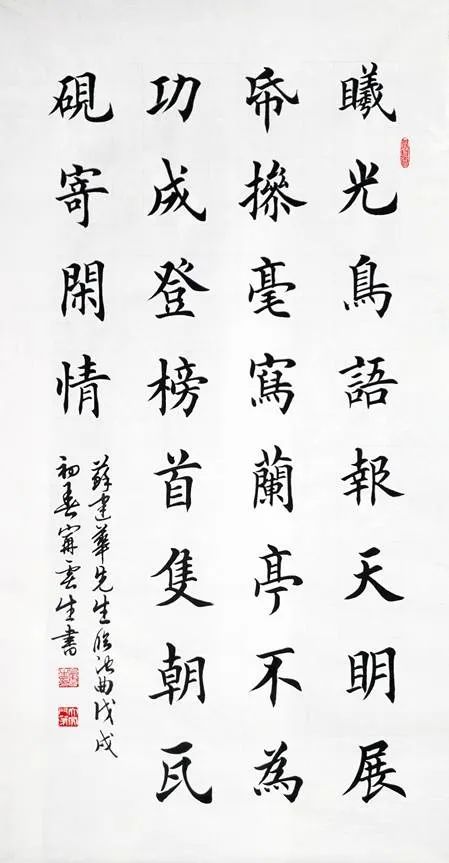 曦光鳥語報天明展
帋操毫寫蘭亭不為
功成登榜首隻朝瓦
硯寄閑情
蘇建華先生臨池曲戊戌
初春甯雲生書